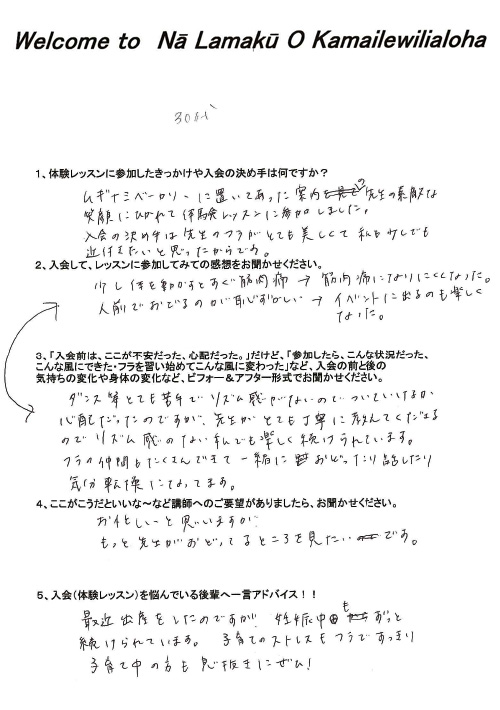 Welcome to Nā Lamakū O Kamailewilialoha
30代
1、体験レッスンに参加したきっかけや入会の決め手は何ですか？
ムギナミベーカリーに置いてあった案内の先生の素敵な
笑顔にひかれて体験レッスンに参加しました。
入会の決め手は先生のフラがとても美しくて私も少しでも
近付きたいと思ったからです。
2、入会して、レッスンに参加してみての感想をお聞かせください。
少し体を動かすとすぐ筋肉痛 → 筋肉痛になりにくくなった。
人前でおどるのが恥ずかしい → イベントに出るのも楽しく
なった。
3、「入会前は、ここが不安だった、心配だった。」だけど、「参加したら、こんな状況だった、
こんな風にできた・フラを習い始めてこんな風に変わった」など、入会の前と後の
気持ちの変化や身体の変化など、ビフォー＆アフター形式でお聞かせください。
ダンス等とても苦手でリズム感がないのでついていけるか
心配だったのですが、先生がとても丁寧に教えてくださる
のでリズム感のない私でも楽しく続けられています。
フラの仲間もたくさんできて一緒におどったり話したり
気分転換になってます。
4、ここがこうだといいな～など講師へのご要望がありましたら、お聞かせください。
お忙しいと思いますが、
もっと先生がおどってるところを見たいです。
5、入会（体験レッスン）を悩んでいる後輩へ一言アドバイス！！
最近出産をしたのですが、妊娠中もずっと
続けられています。 子育てのストレスもフラですっきり
子育て中の方も息抜きにぜひ！